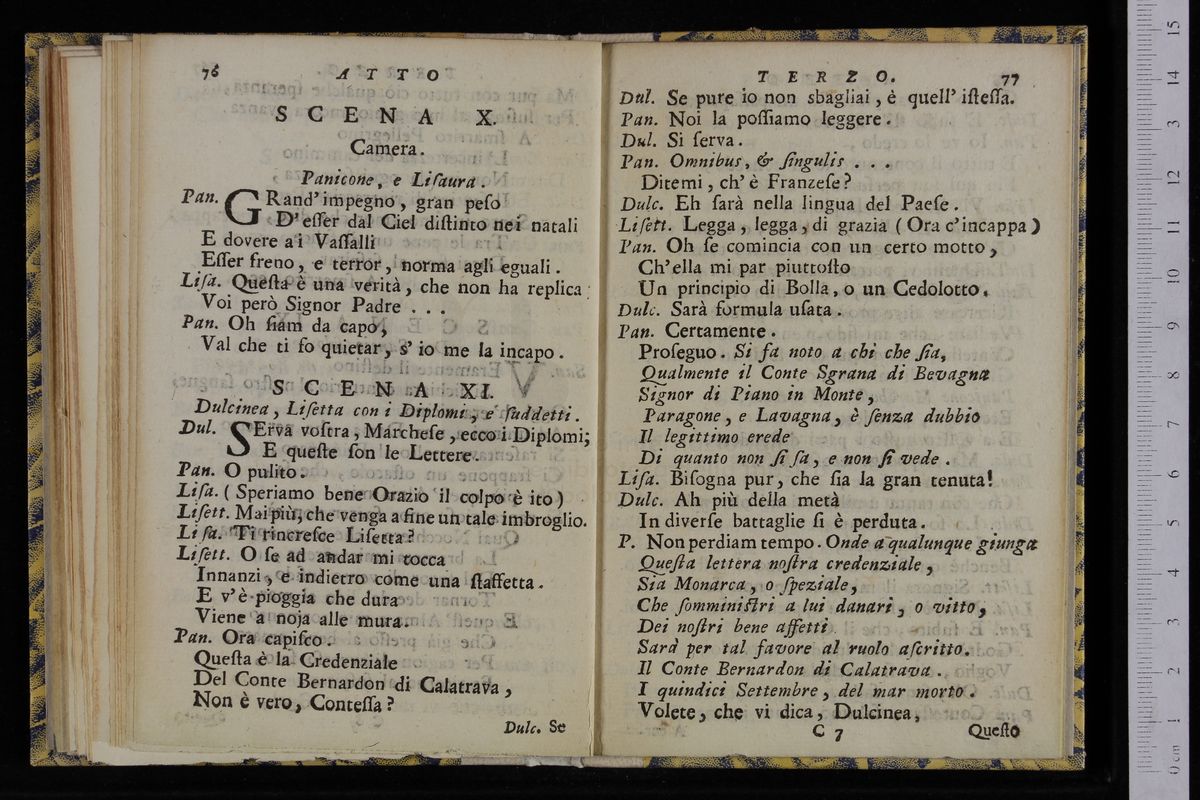 76 ATTO
SCENA X.
Camera.
Panicone, e Liſaura.
Pan. GRand' impegno, gran peſo
D' eſſer dal Ciel diſtinto nei natali
E dovere ai Vaſſalli
Eſſer freno, e terror, norma agli eguali.
Liſa. Queſta è una verità, che non ha replica:
Voi però Signor Padre . . .
Pan. Oh ſiam da capo,
Val che ti fo quietar, s' io me la incapo.
SCENA XI.
Dulcinea, Liſetta con i Diplomi, e ſuddetti.
Dul. SErva voſtra, Marcheſe, ecco i Diplomi;
E queſte ſon le Lettere.
Pan. O pulito.
Liſa. ( Speriamo bene Orazio il colpo è ito )
Liſett. Mai più, che venga a fine un tale imbroglio.
Liſa. Ti rincreſce Liſetta?
Liſett. O ſe ad andar mi tocca
Innanzi, e indietro come una ſtaffetta.
E v' è pioggia che dura
Viene a noja alle mura.
Pan. Ora capiſco.
Queſta è la Credenziale
Del Conte Bernardon di Calatrava,
Non è vero, Conteſſa?
Dulc. Se
TERZO. 77
Dul. Se pure io non sbagliai, è quell' iſteſſa.
Pan. Noi la poſſiamo leggere.
Dul. Si ſerva.
Pan. Omnibus, & ſingulis . . .
Ditemi, ch' è Franzeſe?
Dulc. Eh ſarà nella lingua del Paeſe.
Liſett. Legga, legga, di grazia ( Ora c' incappa )
Pan. Oh ſe comincia con un certo motto,
Ch' ella mi par piuttoſto
Un principio di Bolla, o un Cedolotto.
Dulc. Sarà formula uſata.
Pan. Certamente.
Proſeguo. Si fa noto a chi che ſia,
Qualmente il Conte Sgrana di Bevagna
Signor di Piano in Monte,
Paragone, e Lavagna, è ſenza dubbio
Il legittimo erede
Di quanto non ſi ſa, e non ſi vede.
Liſa. Biſogna pur, che ſia la gran tenuta!
Dulc. Ah più della metà
In diverſe battaglie ſi è perduta.
P. Non perdiam tempo. Onde a qualunque giunga
Queſta lettera noſtra credenziale,
Sia Monarca, o ſpeziale,
Che ſomminiſtri a lui danari, o vitto,
Dei noſtri bene affetti
Sarà per tal favore al ruolo aſcritto.
Il Conte Bernardon di Calatrava.
I quindici Settembre, del mar morto.
Volete, che vi dica, Dulcinea,
C 7 Queſto
0 cm 1 2 3 4 5 6 7 8 9 10 11 12 13 14 15